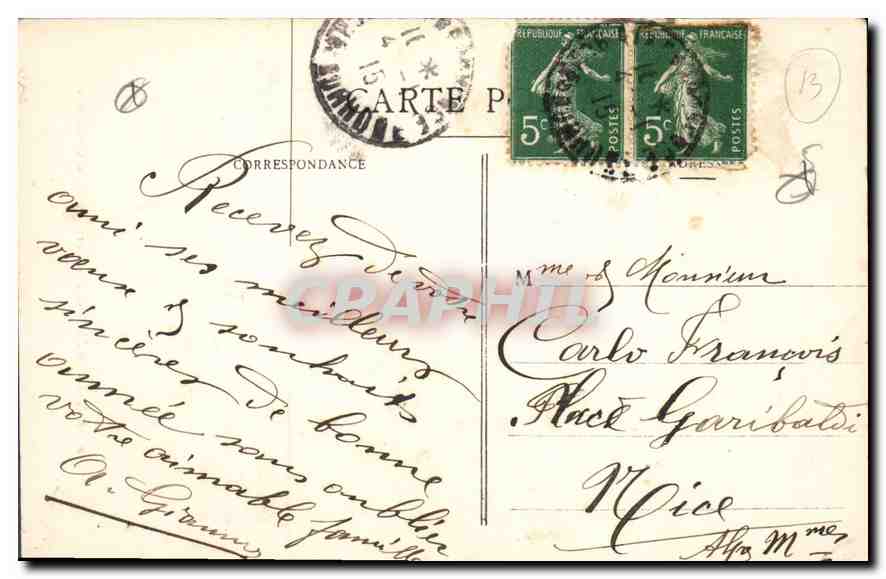 CARTE P
CORRESPONDANCE
REPUBLIQUE FRANÇAISE
5c
POSTES
REPUBLIQUE FRANÇAISE
5c
POSTES
13
Recevez de votre
ami ses meilleurs
vœux & souhaits
sincères de bonne
année sans oublier
votre aimable famille
A.
Mme & Monsieur
Carlo François
Place Garibaldi
Nice
Alpes Mmes
CPAPHIL